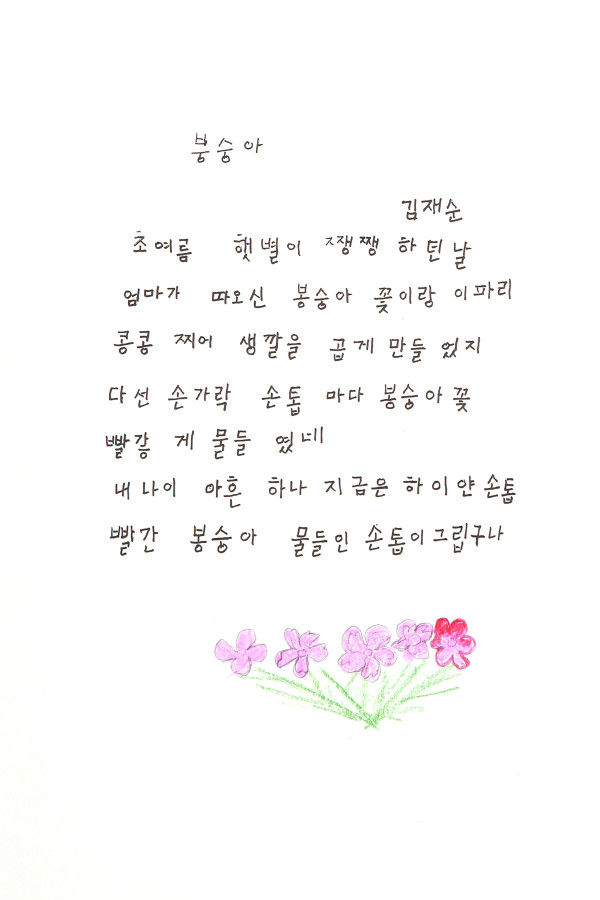 붕숭아
김재순
초여름 햇별이 쟁쨍 하 틴 날
엄마가 따오신 봉숭아 꽃이랑 이파리
콩콩 찌어 생깔을 곱게 만들 었지
다선 손가락 손톱 마다 봉숭아 꽃
빨갛 게 물들 였네
내 나이 아흔 하나 지금은 하이얀 손톱
빨간 봉숭아 물들인 손톱이 그립구나